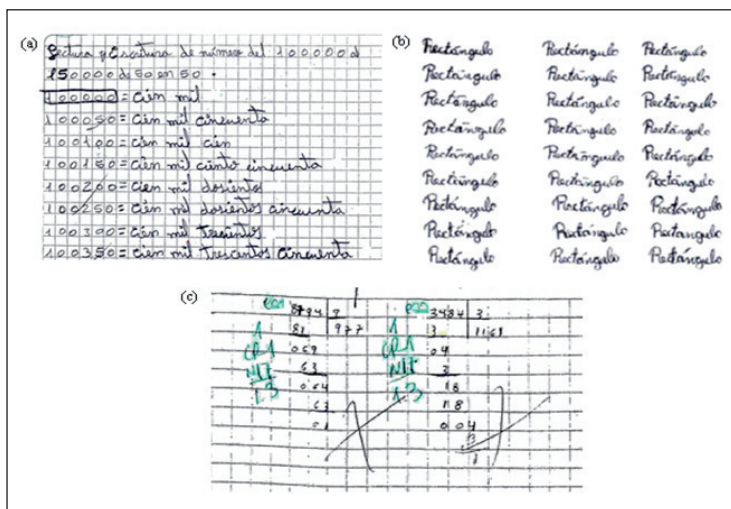 (a)
Lectura y Escritura de números del 100000 al
150000 de 50 en 50.
100000 = cien mil
100050 = cien mil cincuenta
100100 = cien mil cien
100150 = cien mil ciento cincuenta
100200 = cien mil dosientos
100250 = cien mil dosientos cincuenta
100300 = cien mil trescientos
100350 = cien mil trescientos cincuenta
(b)
Rectángulo Rectángulo Rectángulo
Rectángulo Rectángulo Rectángulo
Rectángulo Rectángulo Rectángulo
Rectángulo Rectángulo Rectángulo
Rectángulo Rectángulo Rectángulo
Rectángulo Rectángulo Rectángulo
Rectángulo Rectángulo Rectángulo
Rectángulo Rectángulo Rectángulo
Rectángulo Rectángulo Rectángulo
(c)
8794 9 3484 3
81 977 3 1161
069 04
63 3
064 18
63 18
01 004
3
1